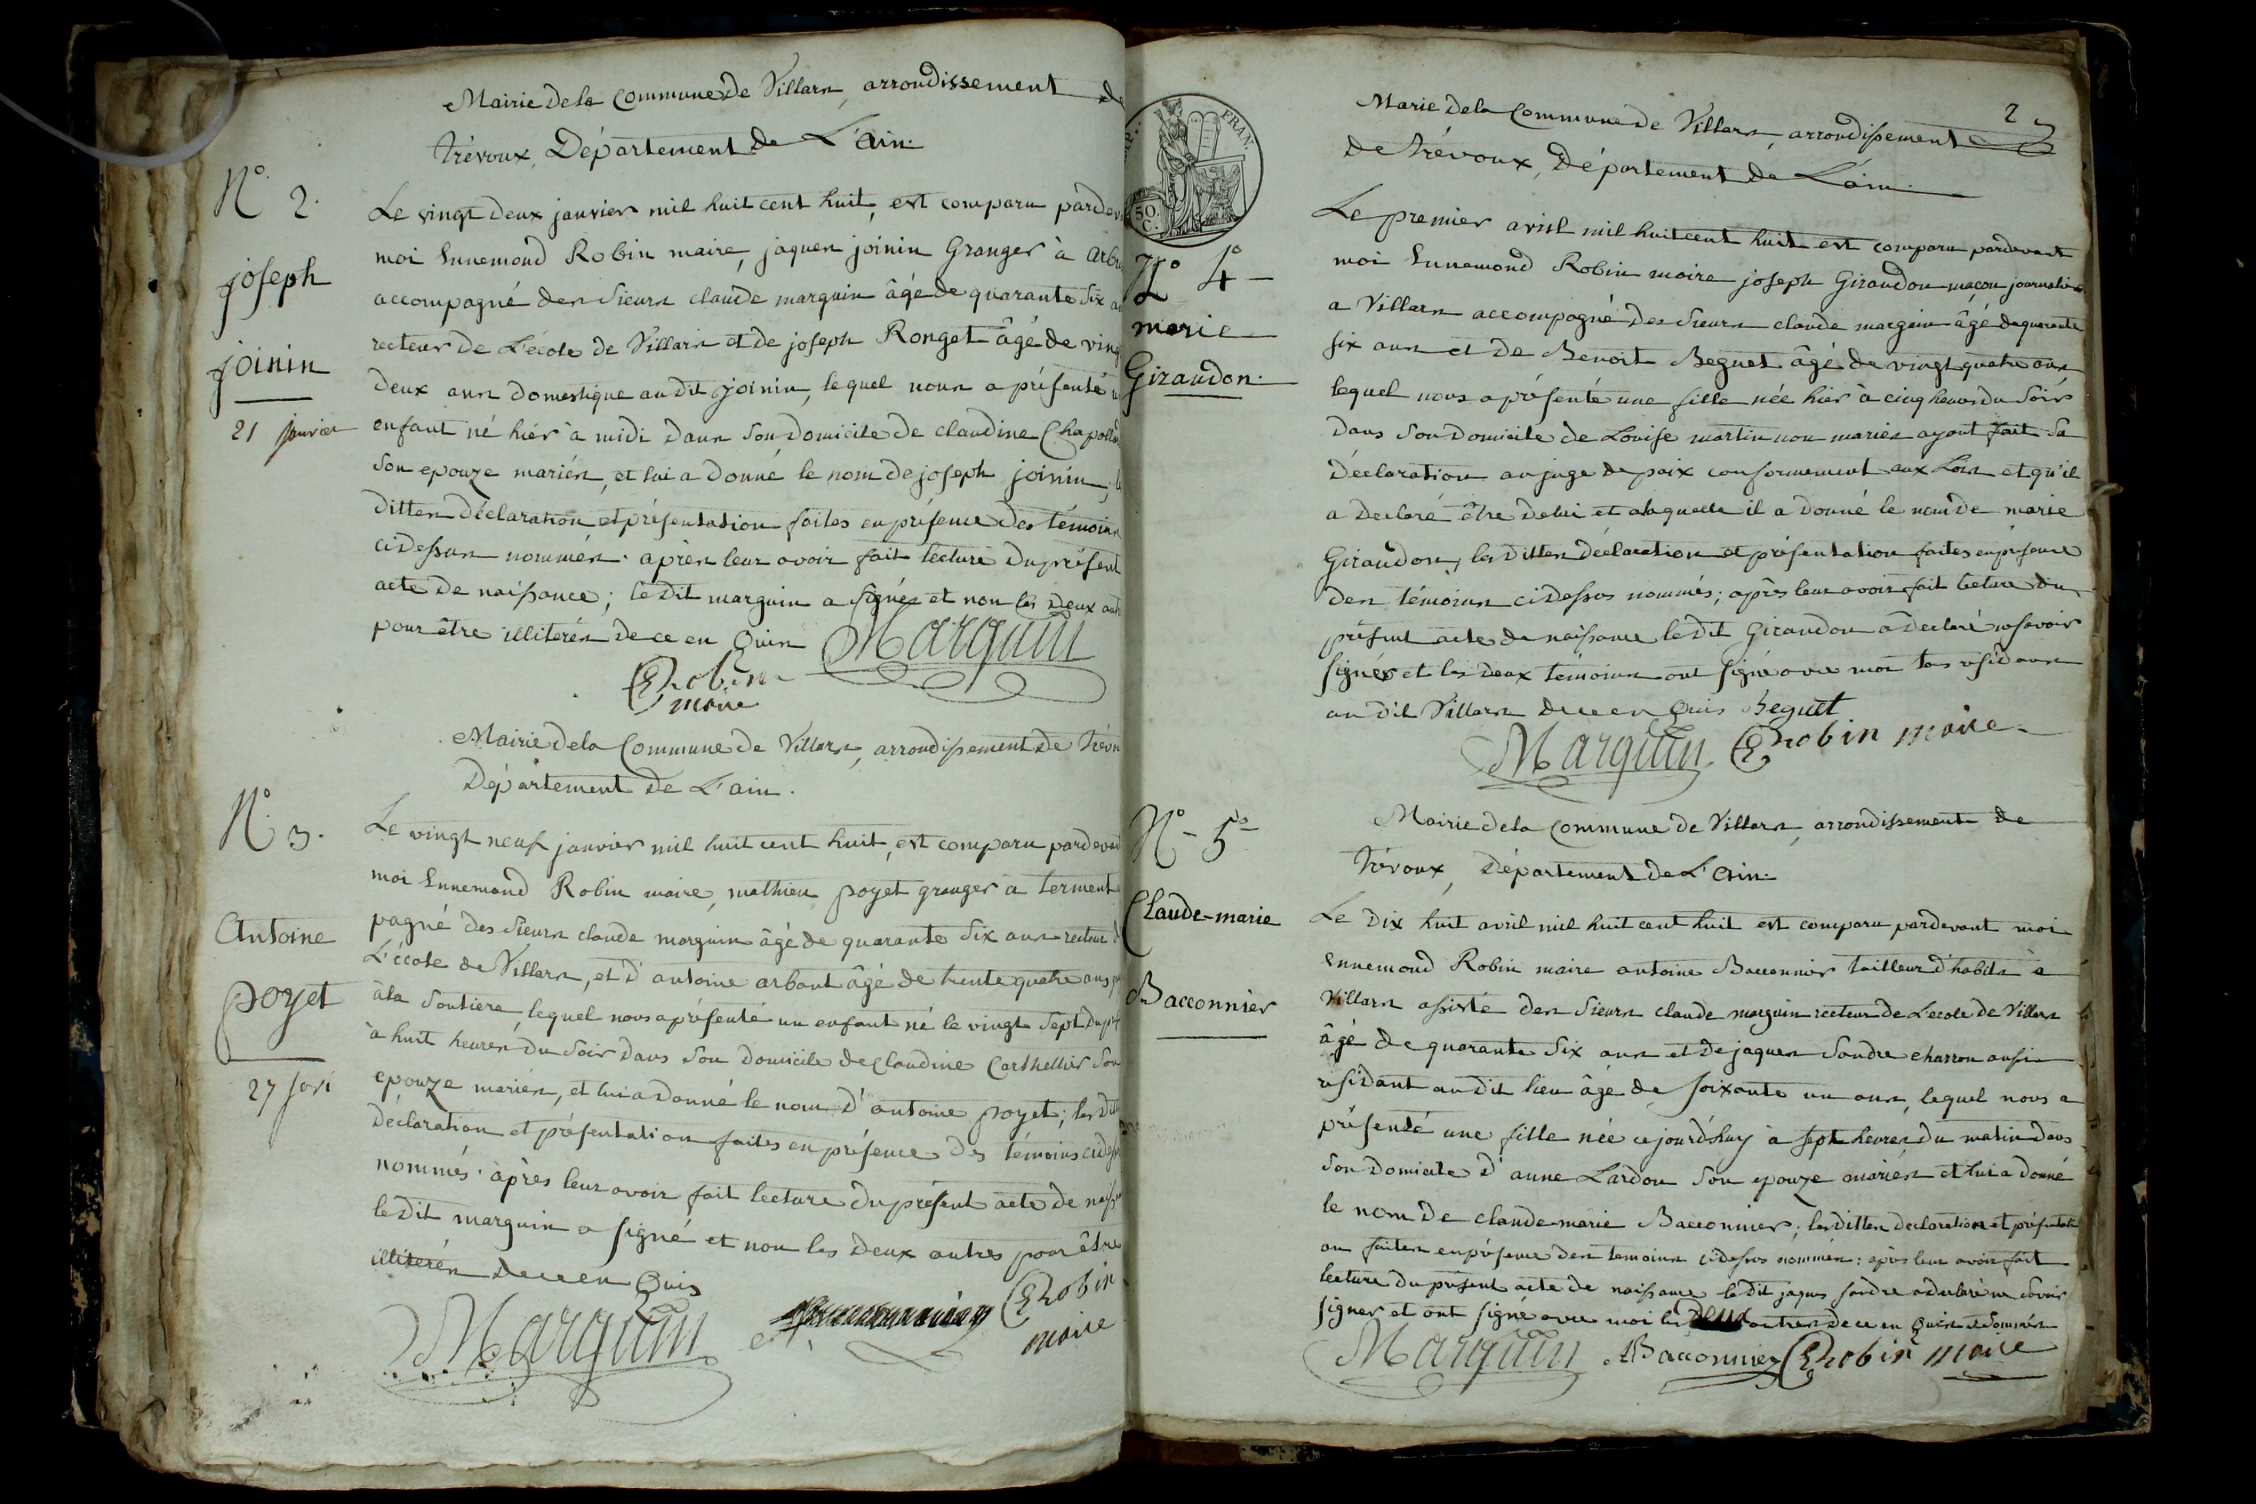 Mairie de la Commune de Villars, arrondissement de
Trévoux, Département de L'ain.
N° 2.
joseph
joinin
21 janvier
Le vingt deux janvier mil huit cent huit, est comparu pardev
moi Ennemond Robin maire, jaques joinin Granger à
accompagné des Sieurs claude marguin âgé de quarante Six
recteur de L'école de Villars et de joseph Ronget âgé de ving
deux ans domestique au dit joinin, lequel nous a présenté
enfant né hier à midi dans Son Domicile de claudine
Son epouze mariés, et lui a Donné le nom de joseph joinin,
dittes déclaration et présentation faites en présence des témoins
ci dessus nommés. après leur avoir fait lecture du présent
acte de naissance; le dit marguin a signé et non les deux
pour être illiterés de ce en Quis Marguin
ERobin
maire
Mairie de la Commune de Villars, arrondissement de Trévo
Département de L'ain.
N° 3.
Antoine
poyet
27 janv
Le vingt neuf janvier mil huit cent huit, est comparu pardevan
moi Ennemond Robin maire, mathieu poyet granger à
pagné des Sieurs claude marguin âgé de quarante Six ans recteur d
L'école de Villars, et d'antoine arbant âgé de trente quatre ans
à la Soutiere, lequel nous a présenté un enfant né le vingt Sept du
à huit heures du Soir dans Son Domicile de claudine Carthellier Son
epouze mariés, et lui a Donné le nom d'antoine poyet; les
déclaration et présentation faites en présence des témoins
nommés. après leur avoir fait lecture du présent acte de
le dit marguin a signé et non les deux autres pour être
illiterés de ce en Quis
Marguin
ERobin
maire
2
Marie de la Commune de Villars, arrondissement
de Trévoux, Département de L'ain.
FRAN.
50.
C.
N° 4
marie
Giraudon.
Le premier avril mil huit cent huit est comparu pardevant
moi Ennemond Robin maire joseph Giraudon maçon journalier
a Villars accompagné des Sieurs claude marguin âgé de quarante
six ans et de Benoit Beguet âgé de vingt quatre ans
lequel nous a présenté une fille née hier à cinq heures du Soir
dans Son Domicile de Louise martin non mariés ayant fait Sa
déclaration au juge de paix conformement aux Lois et qu'il
a declaré être de lui et a laquelle il a donné le nom de marie
Giraudon, les dittes déclaration et présentation faites en présence
des témoins ci dessus nommés; après leur avoir fait lecture du
présent acte de naissance le dit Giraudon a declaré ne savoir
signer et les deux témoins ont signé avec moi tous résidans
au dit Villars de ce en Quis Beguet
Marguin ERobin maire
Mairie de la Commune de Villars, arrondissement de
Trévoux, Département de L'ain.
N° 5
Claude-marie
Bacconnier
Le dix huit avril mil huit cent huit est comparu pardevant moi
Ennemond Robin maire antoine Bacconnier tailleur d'habits à
Villars assisté des Sieurs claude marguin recteur de L'ecole de Villars
âgé de quarante Six ans et de jaques Sondre charron aussi
résidant au dit lieu âgé de soixante un ans, lequel nous a
présenté une fille née cejourd'huy à sept heures du matin dans
Son Domicile d'anne Lardon Son epouze mariés et lui a donné
le nom de claude marie Bacconnier; les dittes declaration et présentati
on faites en présence des temoins ci dessus nommés: après leur avoir fait
lecture du présent acte de naissance le dit jaques sondre a declaré ne savoir
signer et ont signé avec moi les deux autres de ce en Quis et Sommés
Marguin ABacconnier ERobin maire